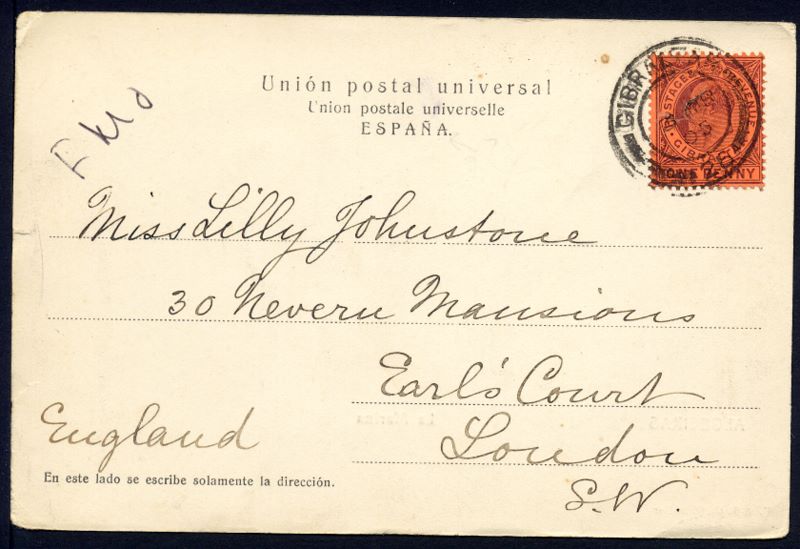 Unión postal universal
Union postale universelle
ESPAÑA.
GIBRALTAR
POSTAGE & REVENUE
GIBRALTAR
ONE PENNY
Miss Lilly Johnstone
30 Nevern Mansions
Earl's Court
England
London
S.W.
En este lado se escribe solamente la dirección.
ALGECIRAS
La Marina